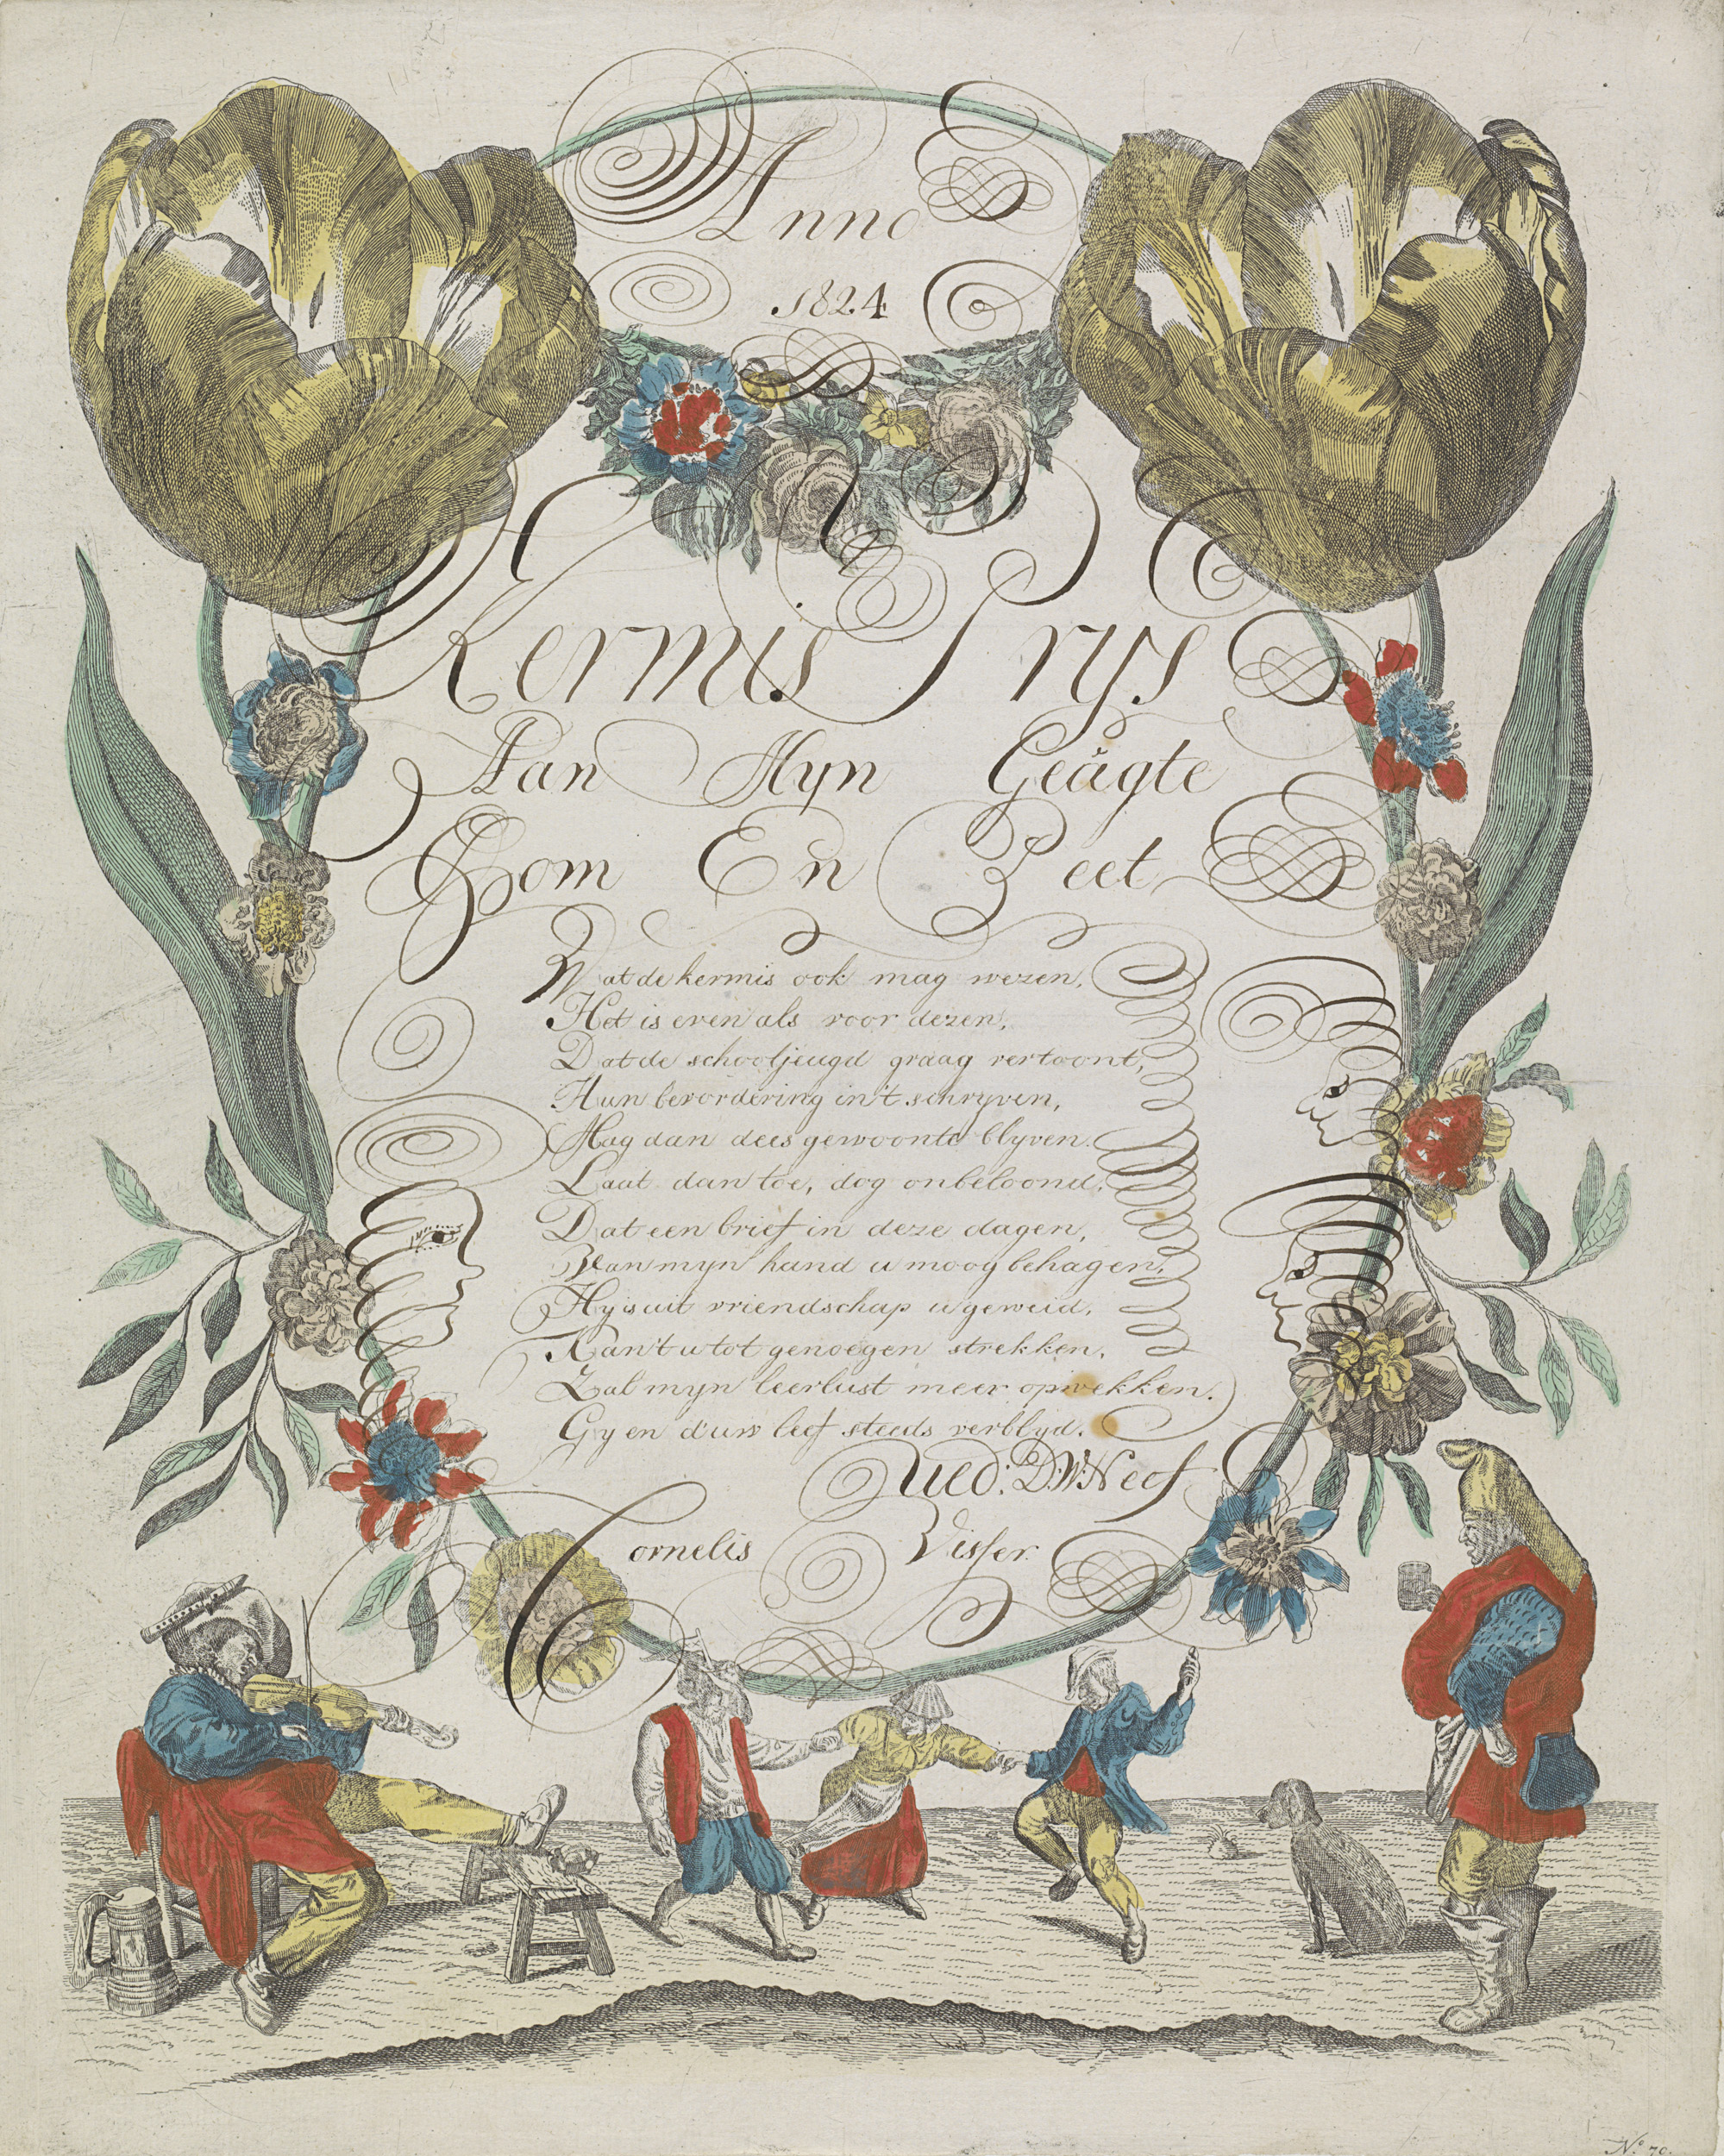 Anno
1824
Kermis Prys
Aan Myn Geägte
Oom En Peet
Wat de kermis ook mag wezen,
Het is even als voor dezen,
Dat de schooljeugd graag vertoont,
Hun bevordering in't schryven,
Mag dan dees gewoonte blyven.
Laat dan toe, dog onbeloond,
Dat een brief in deze dagen,
Van myn hand u moog behagen.
Hy is uit vriendschap u geweid,
Kan't u tot genoegen strekken,
Zal myn leerlust meer opwekken.
Gy en d'uw leef steeds verblyd.
Ued: D:W: Neef
Cornelis Visser
No. 70.